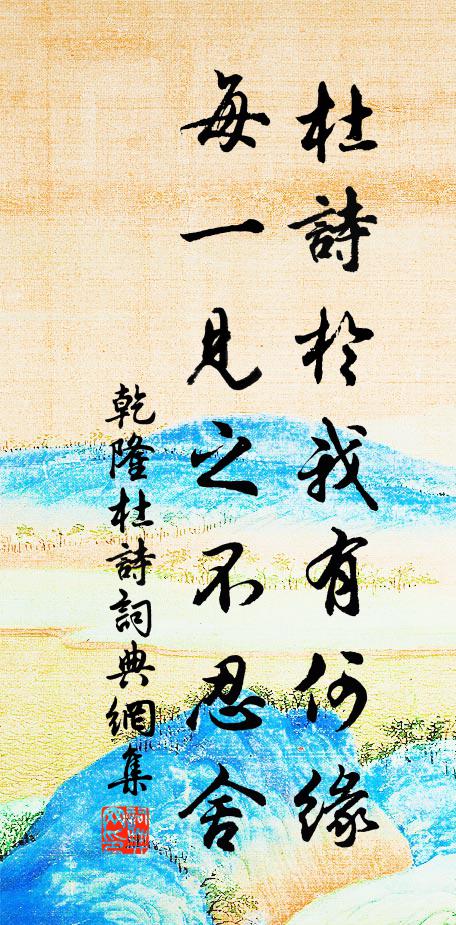 杜詩於我有何緣
每一見之不忍舍
乾隆杜詩詞典網集